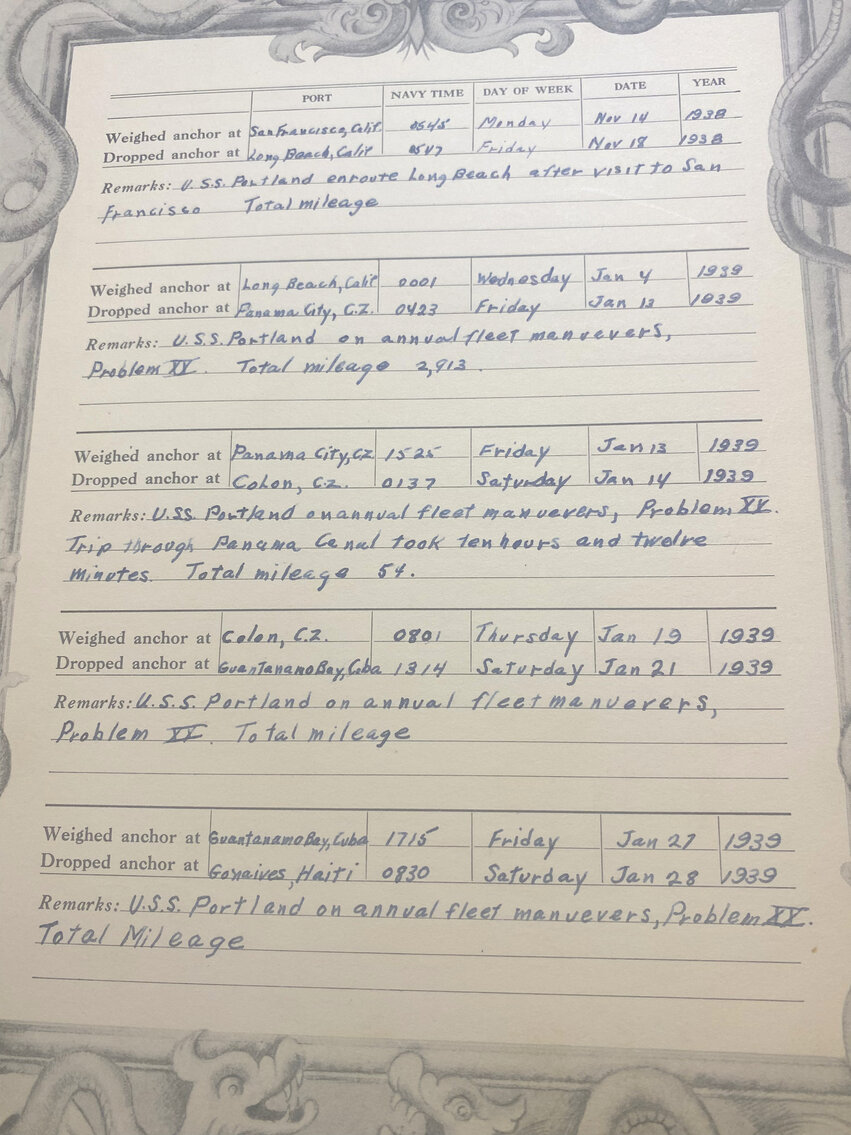 PORT NAVY TIME DAY OF WEEK DATE YEAR
Weighed anchor at San Francisco, Calif. 0545 Monday Nov 14 1938
Dropped anchor at Long Beach, Calif 0547 Friday Nov 18 1938
Remarks: U.S.S. Portland enroute Long Beach after visit to San
Francisco Total mileage
Weighed anchor at Long Beach, Calif 0001 Wednesday Jan 4 1939
Dropped anchor at Panama City, C.Z. 0423 Friday Jan 13 1939
Remarks: U.S.S. Portland on annual fleet manuevers,
Problem XX. Total mileage 2,913.
Weighed anchor at Panama City, CZ 1525 Friday Jan 13 1939
Dropped anchor at Colon, C.Z. 0137 Saturday Jan 14 1939
Remarks: U.S.S. Portland on annual fleet manuevers, Problem XX.
Trip through Panama Canal took ten hours and twelve
minutes. Total mileage 54.
Weighed anchor at Colon, C.Z. 0801 Thursday Jan 19 1939
Dropped anchor at Guantanamo Bay, Cuba 1314 Saturday Jan 21 1939
Remarks: U.S.S. Portland on annual fleet manuevers,
Problem XX. Total mileage
Weighed anchor at Guantanamo Bay, Cuba 1715 Friday Jan 27 1939
Dropped anchor at Gonaives, Haiti 0830 Saturday Jan 28 1939
Remarks: U.S.S. Portland on annual fleet manuevers, Problem XX.
Total Mileage